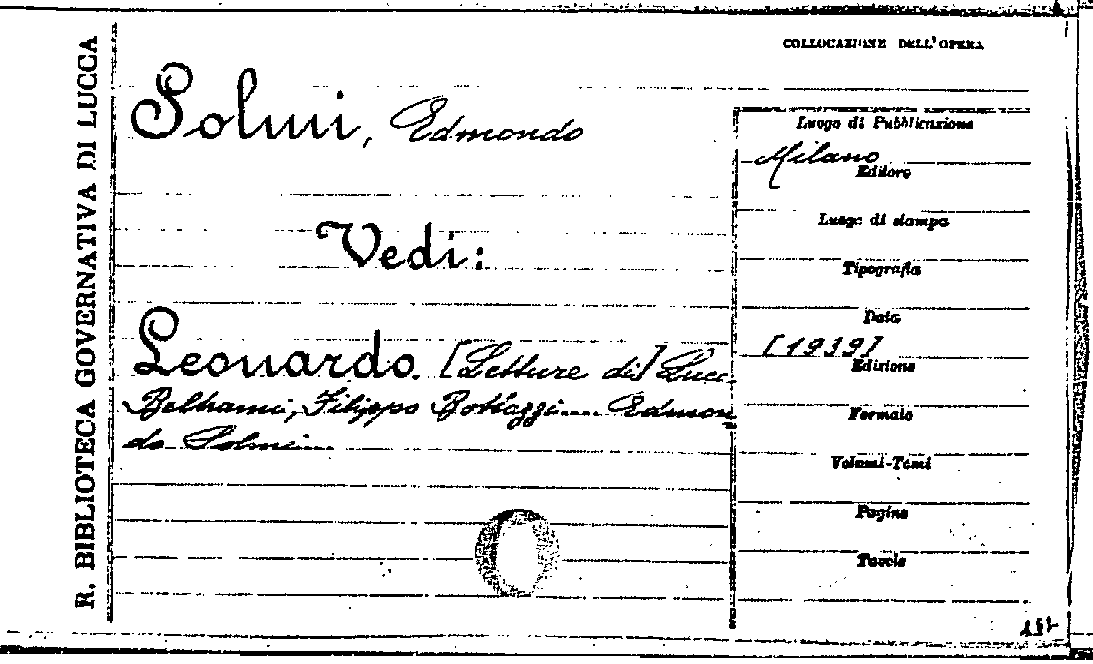 R. BIBLIOTECA GOVERNATIVA DI LUCCA
COLLOCAZIONE DELL'OPERA
Solmi, Edmondo
Vedi:
Leonardo. [Letture di] Luca
Beltrami, Filippo Bottazzi.... Edmon
do Solmi....
Luogo di Pubblicazione
Milano
Editore
Luogo di stampa
Tipografia
Data
[1939]
Edizione
Formato
Volumi-Tomi
Pagine
Tavole